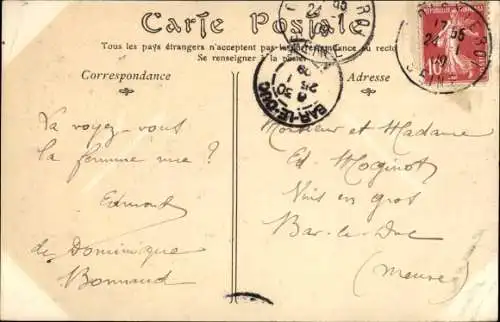 Carte Postale
Tous les pays étrangers n'acceptent pas la correspondance au recto
Se renseigner à la poste
Correspondance
Adresse
BAR-LE-DUC
10
La voyez-vous
la femme nue ?
Edmont
de Dominique
Bonnaud
Monsieur et Madame
Ed. Moginot
Vins en gros
Bar-le-Duc
(Meuse)